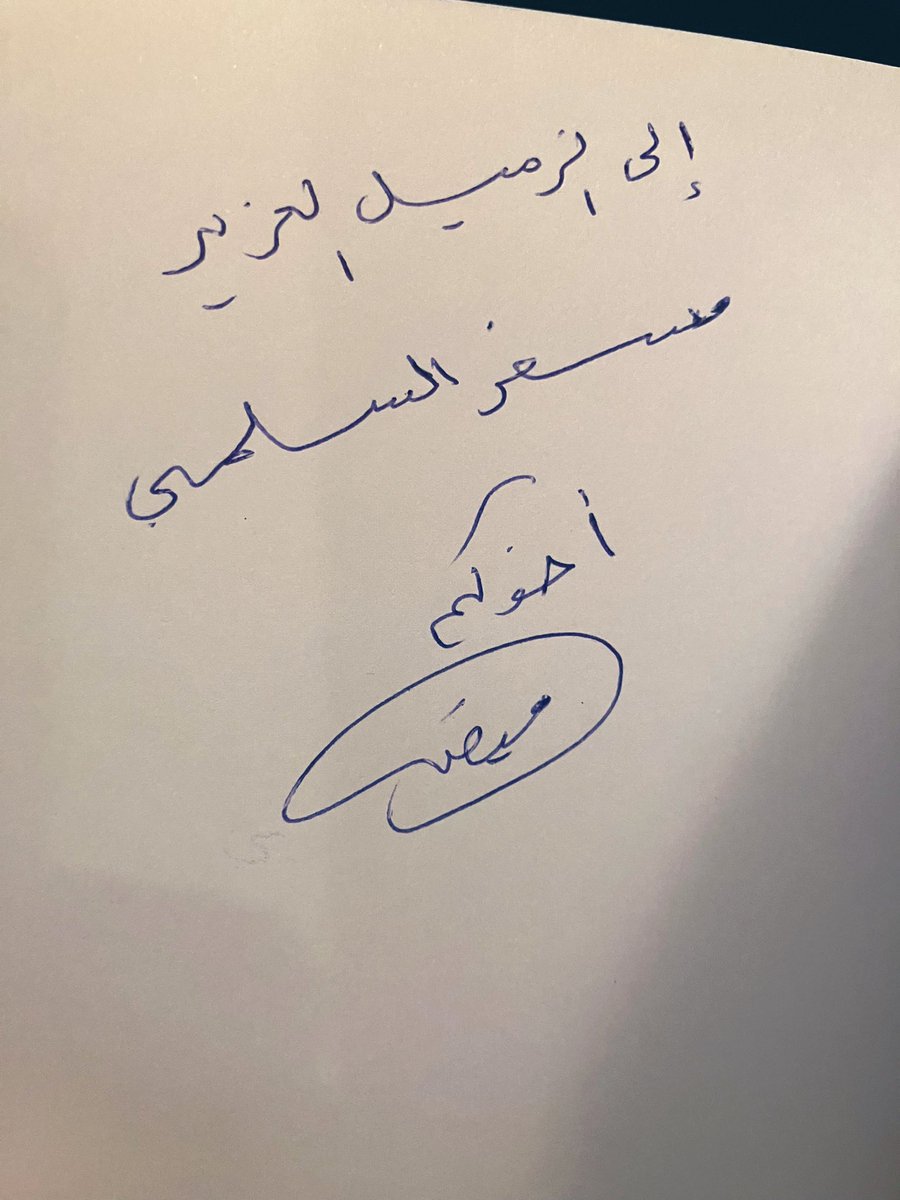 إلى الزميل العزيز
مسفر السلمي
أخوكم